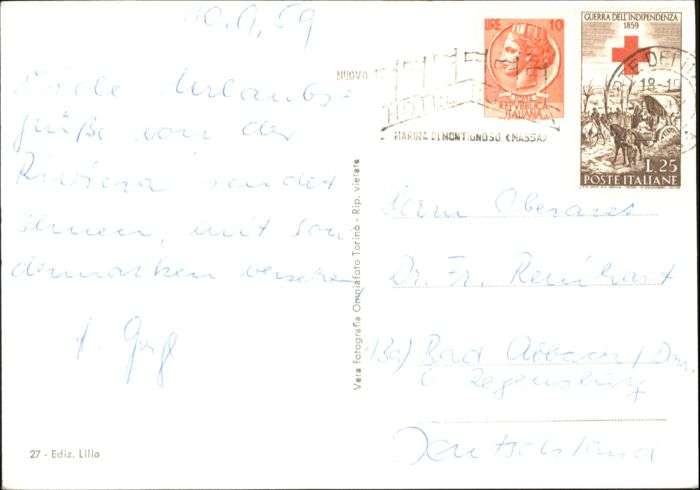 10.9.59
Viele Urlaubs=
grüße von der
Riviera sendet
Ihnen, mit Son
dermarken versehen
27 - Ediz. Lilla
Vera fotografia Omniafoto Torino - Rip. vietata
NUOVO
MARINA DI MONTIGNOSO (MASSA)
LIRE 10
REPUBBLICA
ITALIANA
GUERRA DELL'INDIPENDENZA
1859
L.25
POSTE ITALIANE
Herrn Oberarzt
Dr. Fr. Reinhart
13a) Bad Abbach / Don.
b. Regensburg
Deutschland